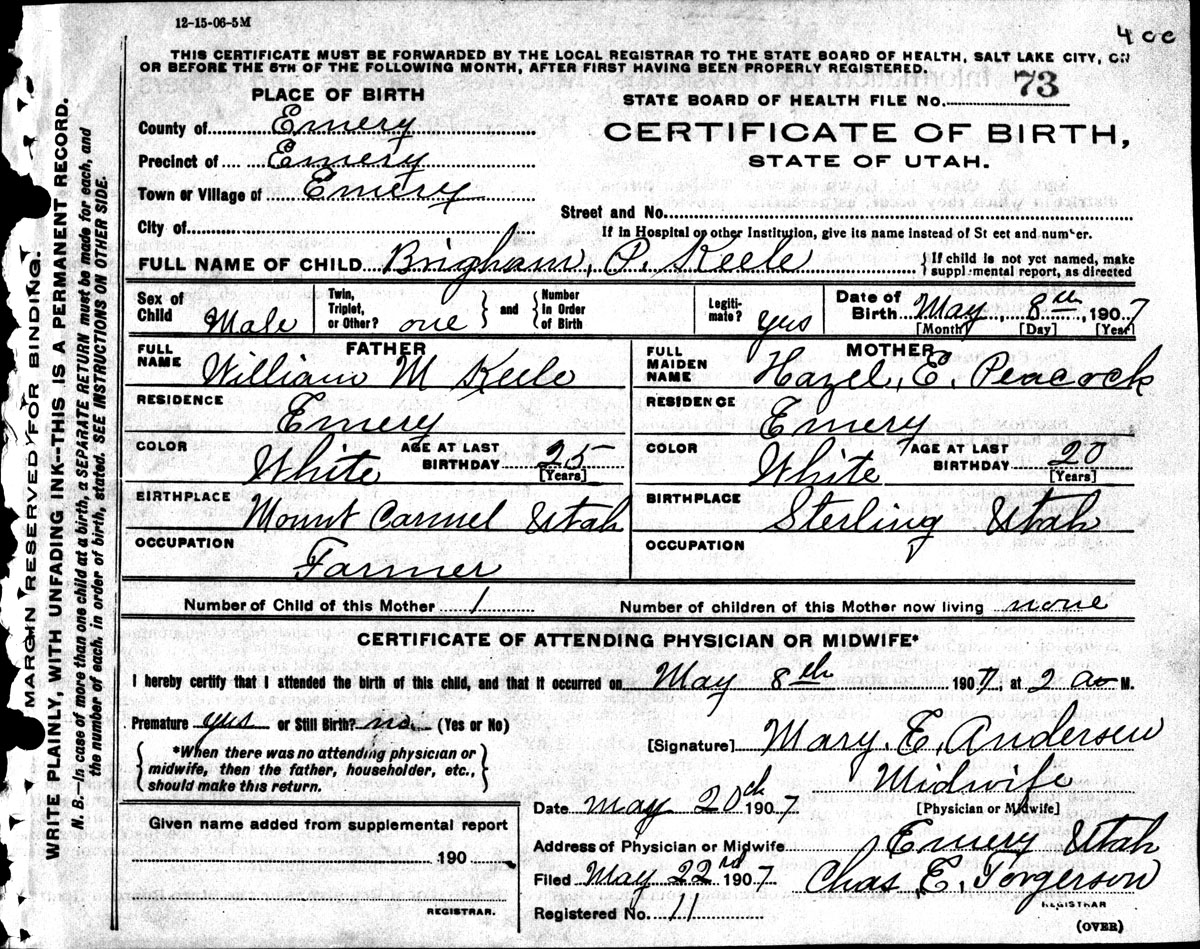 12-15-06-5M
4cc
THIS CERTIFICATE MUST BE FORWARDED BY THE LOCAL REGISTRAR TO THE STATE BOARD OF HEALTH, SALT LAKE CITY, ON
OR BEFORE THE 5TH OF THE FOLLOWING MONTH, AFTER FIRST HAVING BEEN PROPERLY REGISTERED.
PLACE OF BIRTH
County of Emery
Precinct of Emery
Town or Village of Emery
City of
STATE BOARD OF HEALTH FILE NO. 73
CERTIFICATE OF BIRTH,
STATE OF UTAH.
Street and No.
If in Hospital or other Institution, give its name instead of St eet and number.
FULL NAME OF CHILD Brigham, P. Keele
If child is not yet named, make
suppl mental report, as directed
Sex of Child Male
Twin, Triplet, or Other? one
and
Number in Order of Birth
Legiti- mate? yes
Date of Birth May 8th, 1907
[Month] [Day] [Year]
FATHER
FULL NAME William M Keele
RESIDENCE Emery
COLOR White AGE AT LAST BIRTHDAY 25
[Years]
BIRTHPLACE Mount Carmel Utah
OCCUPATION Farmer
MOTHER
FULL MAIDEN NAME Hazel, E. Peacock
RESIDENCE Emery
COLOR White AGE AT LAST BIRTHDAY 20
[Years]
BIRTHPLACE Sterling Utah
OCCUPATION
Number of Child of this Mother 1 Number of children of this Mother now living none
CERTIFICATE OF ATTENDING PHYSICIAN OR MIDWIFE*
I hereby certify that I attended the birth of this child, and that it occurred on May 8th 1907, at 2 a M.
Premature yes or Still Birth? no (Yes or No)
*When there was no attending physician or
midwife, then the father, householder, etc.,
should make this return.
[Signature] Mary. E. Andersen
Midwife
[Physician or Midwife]
Date May 20th 1907
Address of Physician or Midwife Emery Utah
Filed May 22rd 1907 Chas. E. Torgerson
REGISTRAR
Registered No. 11
(OVER)
Given name added from supplemental report
190
REGISTRAR.
MARGIN RESERVED FOR BINDING.
WRITE PLAINLY, WITH UNFADING INK--THIS IS A PERMANENT RECORD.
N. B.--In case of more than one child at a birth, a SEPARATE RETURN must be made for each, and
the number of each, in order of birth, stated. SEE INSTRUCTIONS ON OTHER SIDE.